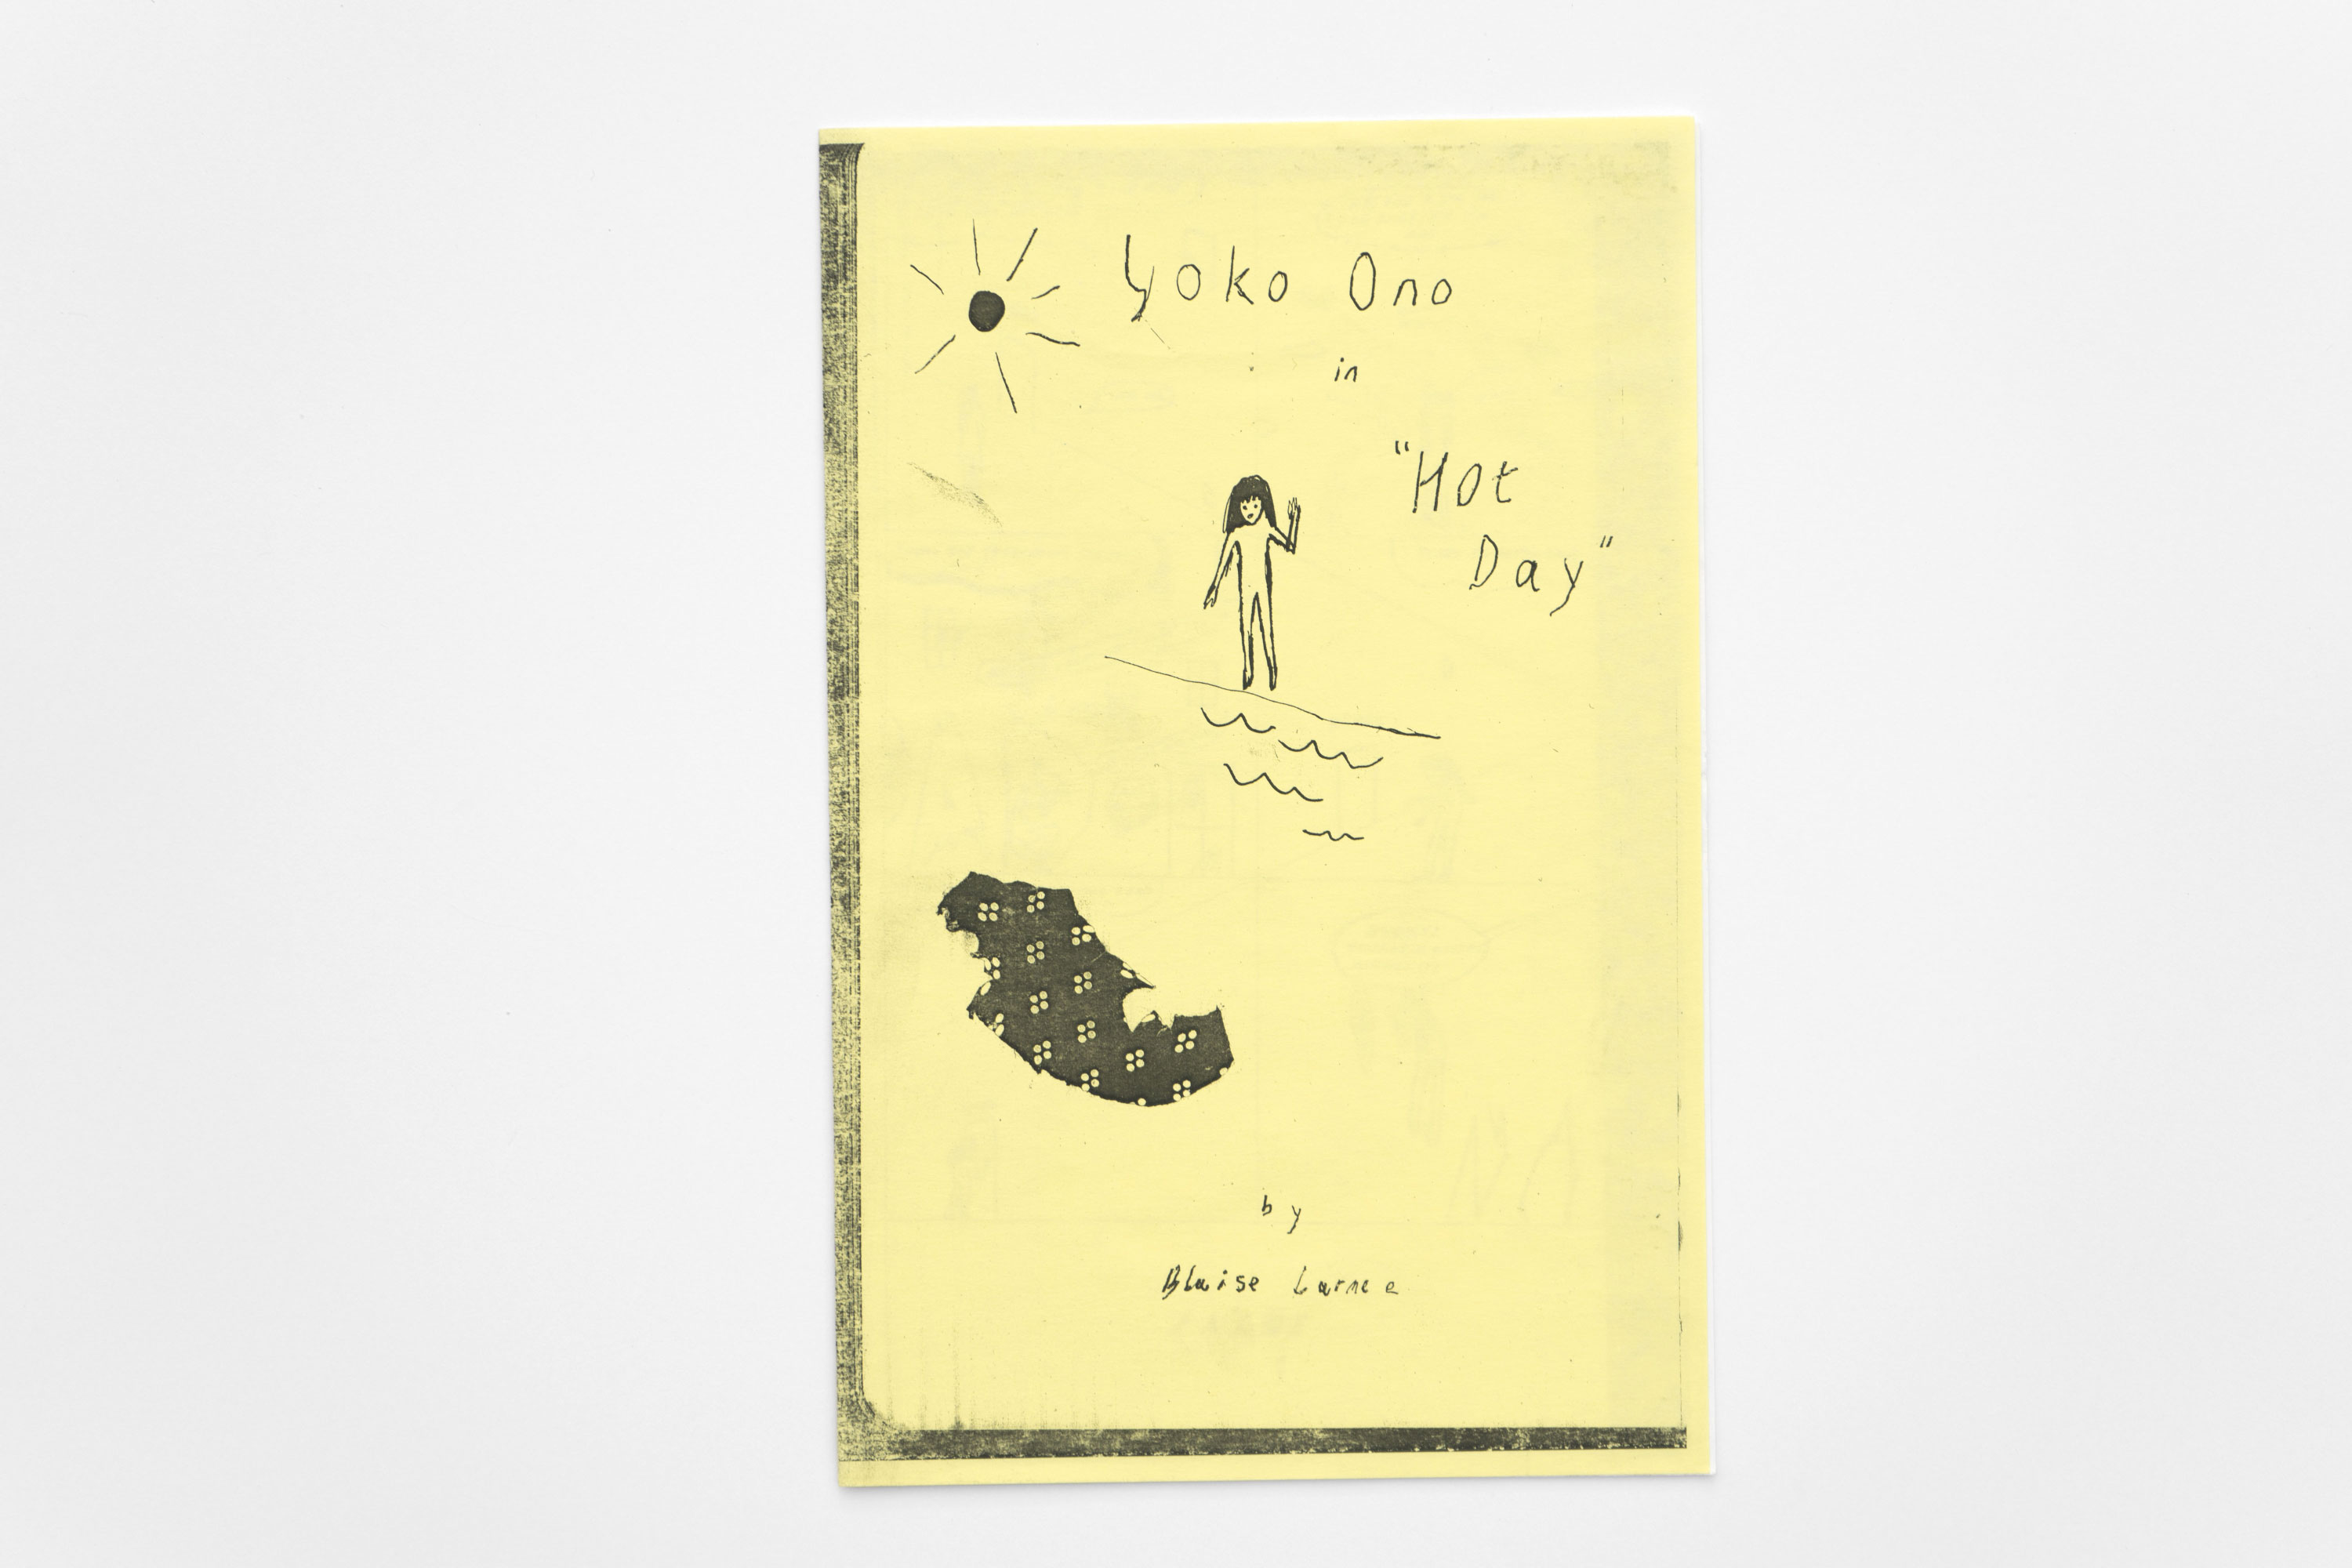 Yoko Ono
in
"Hot
Day"
by
Blaise Larmee